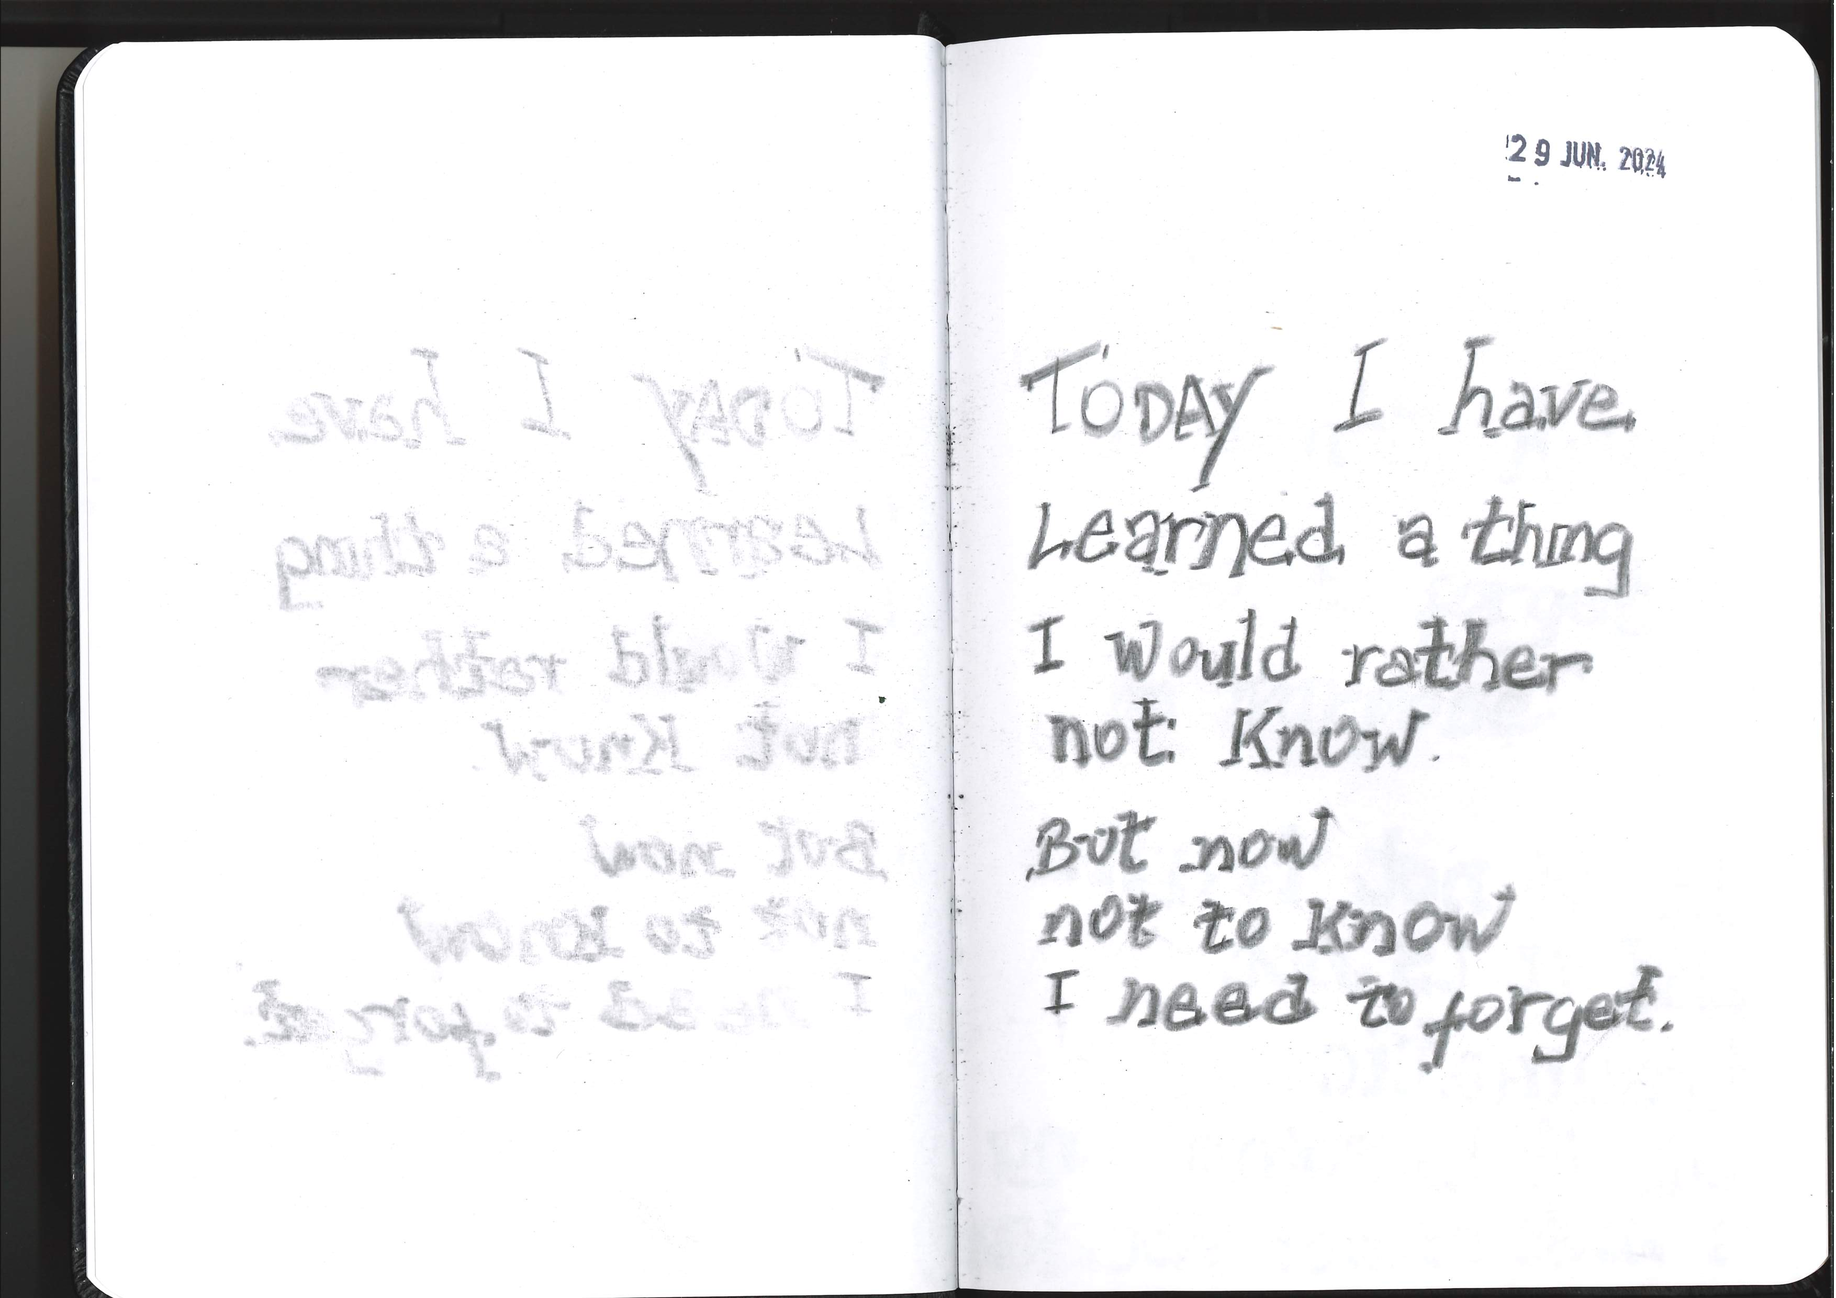 29 JUN. 2024
TODAY I have
Learned a thing
I would rather
not Know.
But now
not to know
I need to forget.